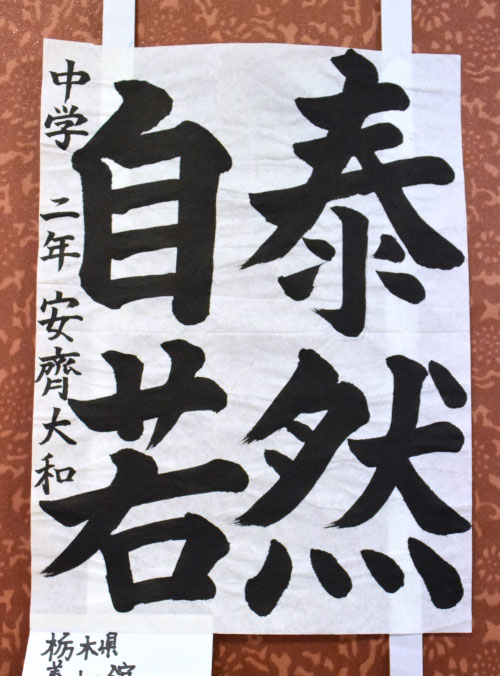 泰然
自若
中学 二年 安齊大和
栃木県